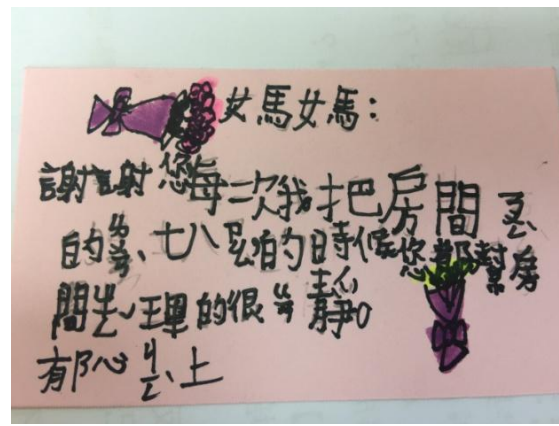 媽媽:
謝謝您每次我把房間ㄋㄨㄥˋ
的ㄌㄨㄢˋ七八ㄗㄠ的時候您都幫房
間ㄓㄥˇ理的很ㄍㄢ靜
郁心ㄐㄧㄥˋ上